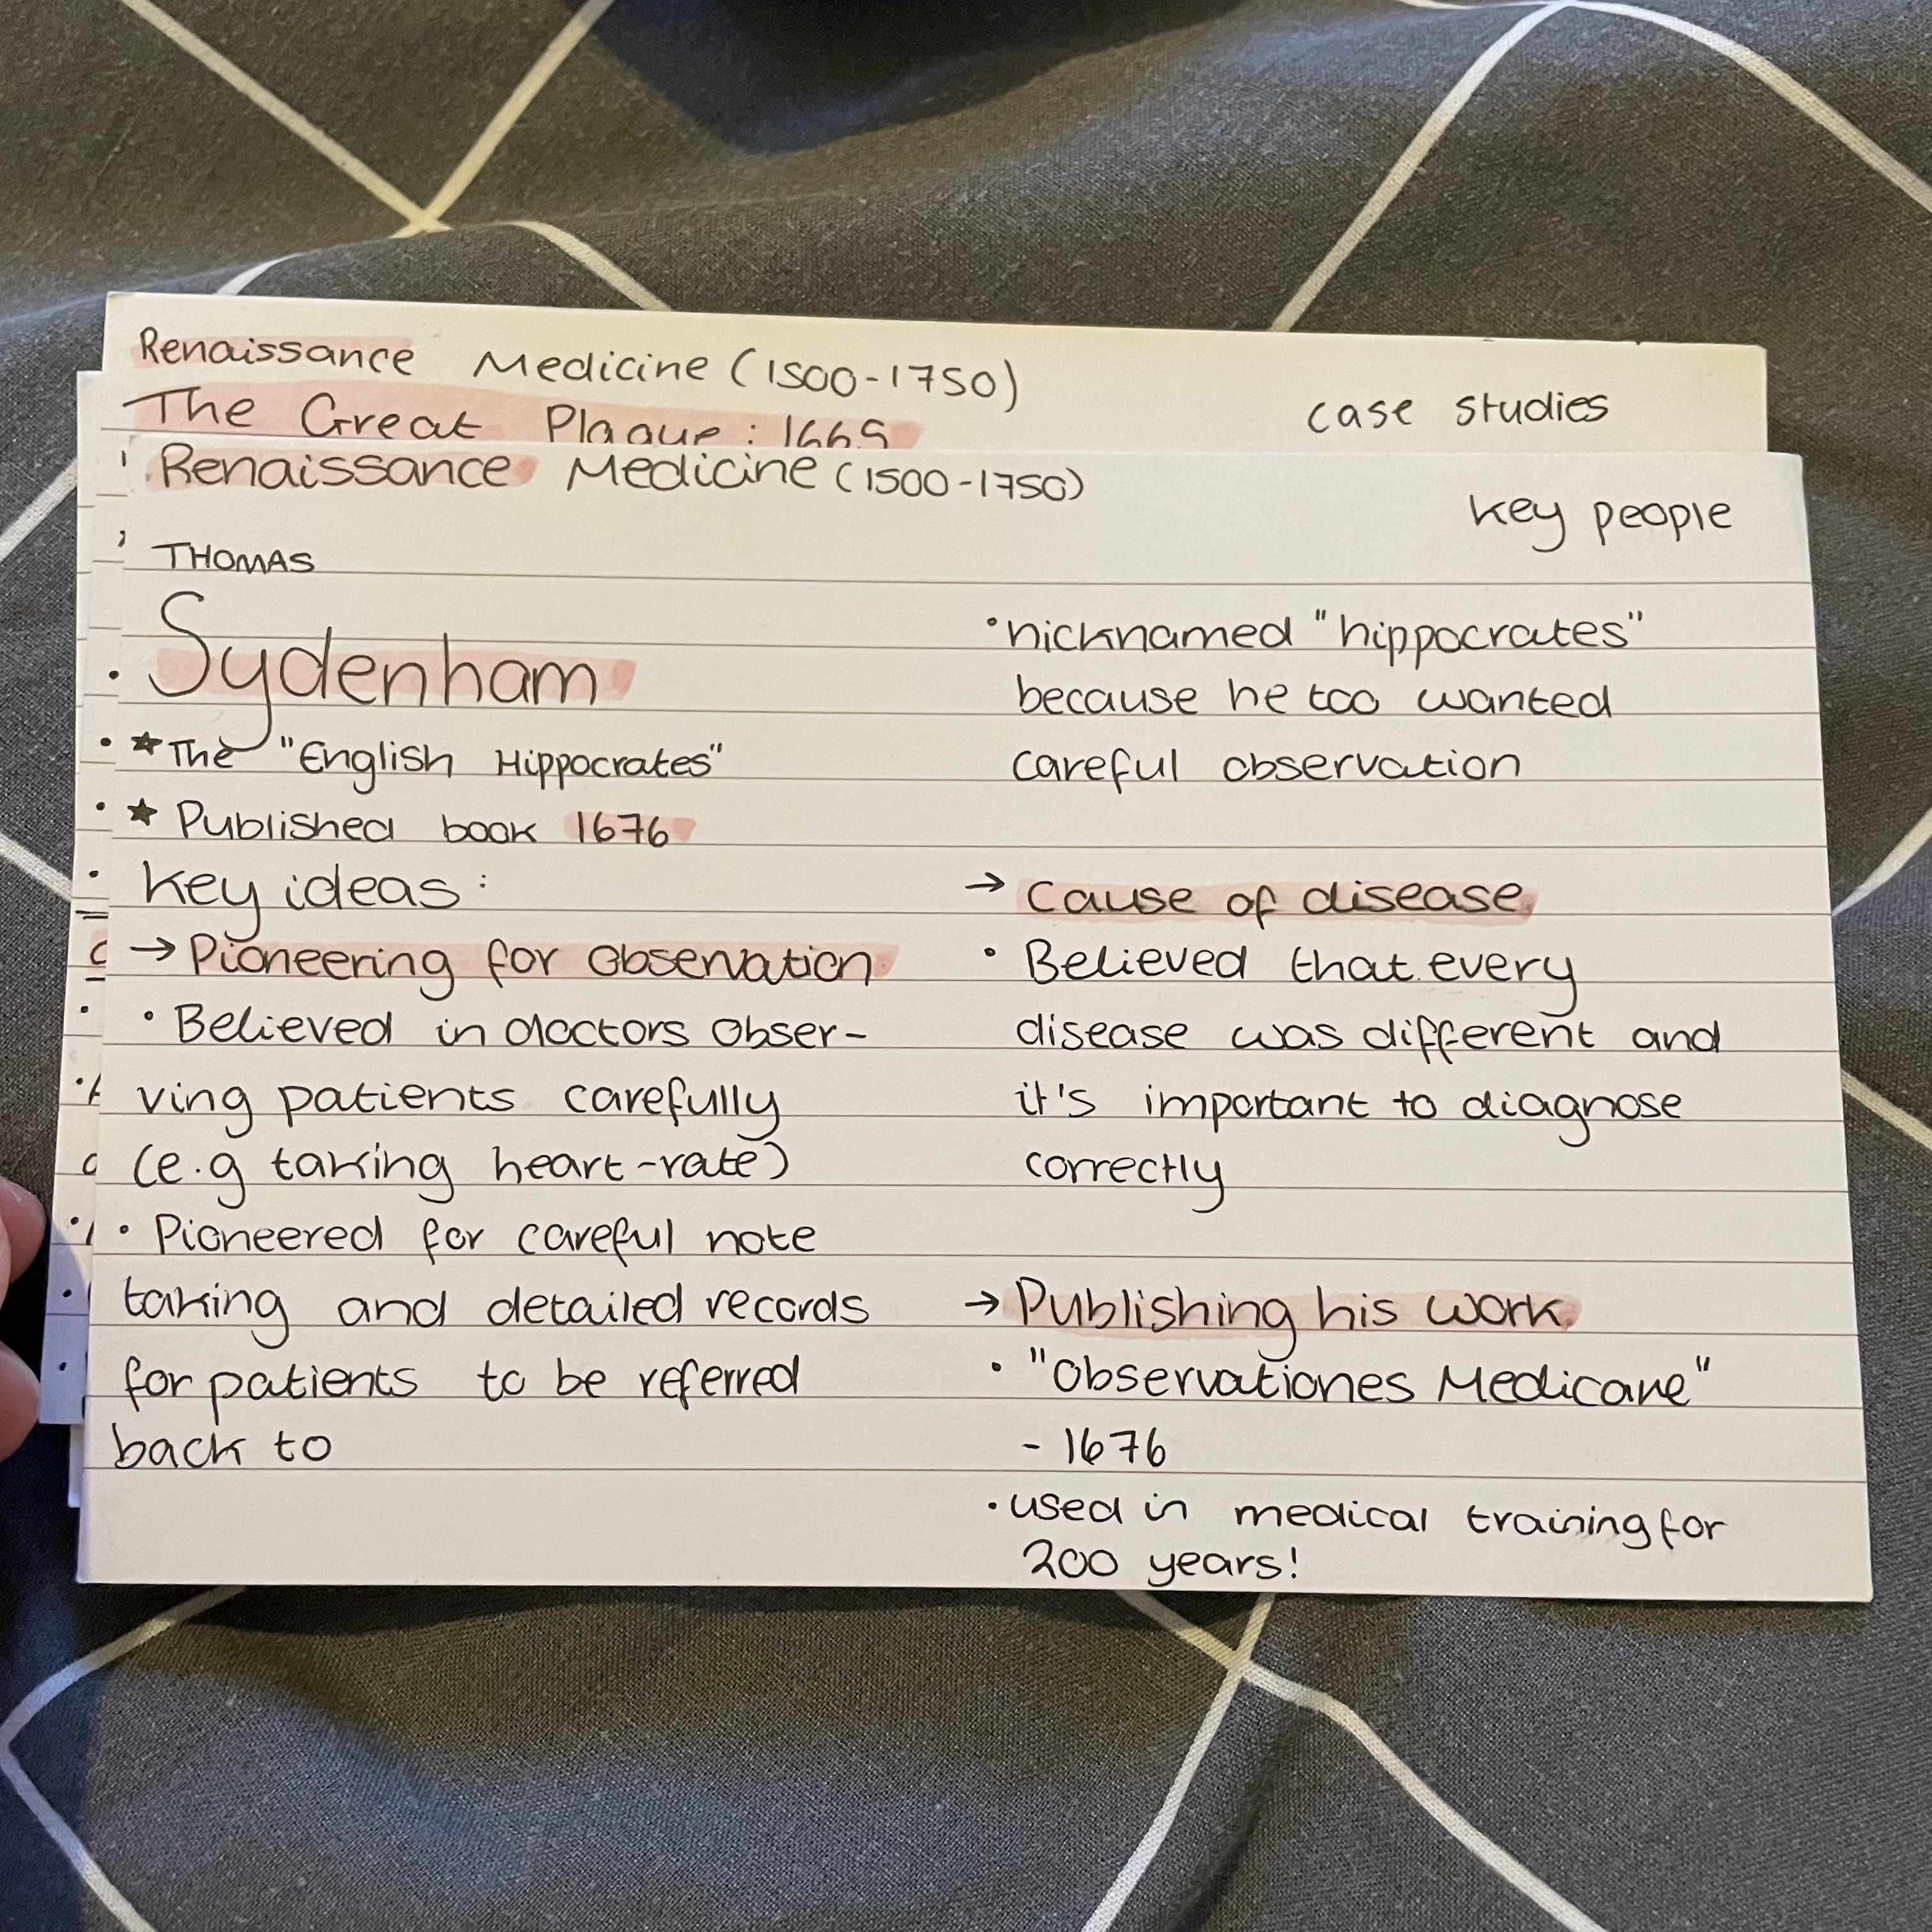 Renaissance Medicine (1500-1750)
case studies
The Great Plague: 1665
Renaissance Medicine (1500-1750)
key people
THOMAS
Sydenham
★ The "English Hippocrates"
★ Published book 1676
key ideas:
→ Pioneering for observation
• Believed in doctors obser-
ving patients carefully
(e.g taking heart-rate)
• Pioneered for careful note
taking and detailed records
for patients to be referred
back to
• nicknamed "hippocrates"
because he too wanted
careful observation
→ cause of disease
• Believed that every
disease was different and
it's important to diagnose
correctly
→ Publishing his work
• "Observationes Medicane"
- 1676
• used in medical training for
200 years!